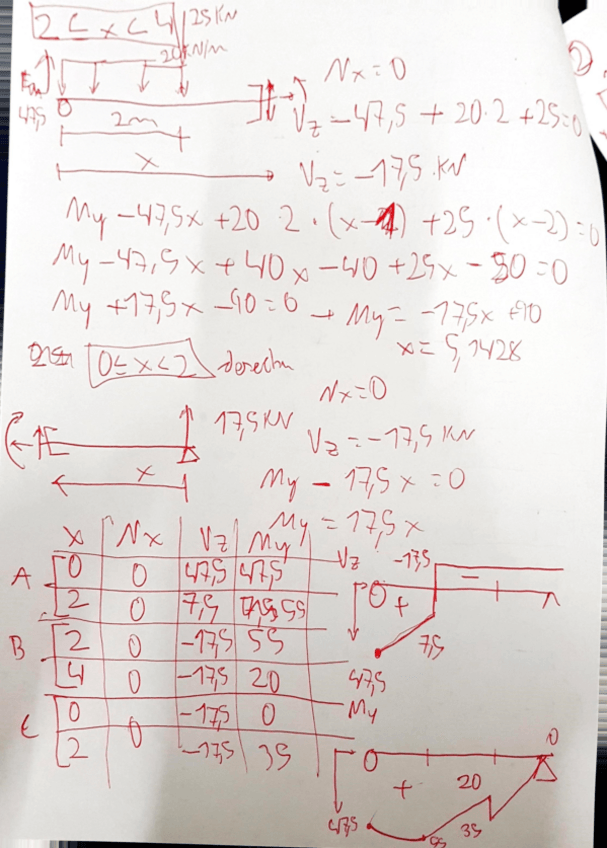 2 ≤ x < 4
25 KN
20 KN/m
47,5
0
2m
x
Nx = 0
Vz - 47,5 + 20·2 + 25 = 0
Vz = -17,5 KN
My - 47,5x + 20 2·(x-1) + 25·(x-2) = 0
My - 47,5x + 40x - 40 + 25x - 50 = 0
My + 17,5x - 90 = 0 → My = -17,5x + 90
x = 5,1428
0 ≤ x < 2 derecha
Nx = 0
17,5 KN
Vz = -17,5 KN
x
My - 17,5x = 0
My = 17,5x
x Nx Vz My
A 0 0 47,5 47,5
2 0 7,5 55
B 2 0 -17,5 55
4 0 -17,5 20
C 0 0 -17,5 0
2 -17,5 35
Vz
-17,5
-
0
+
7,5
47,5
My
0
0
+
20
47,5
35
2